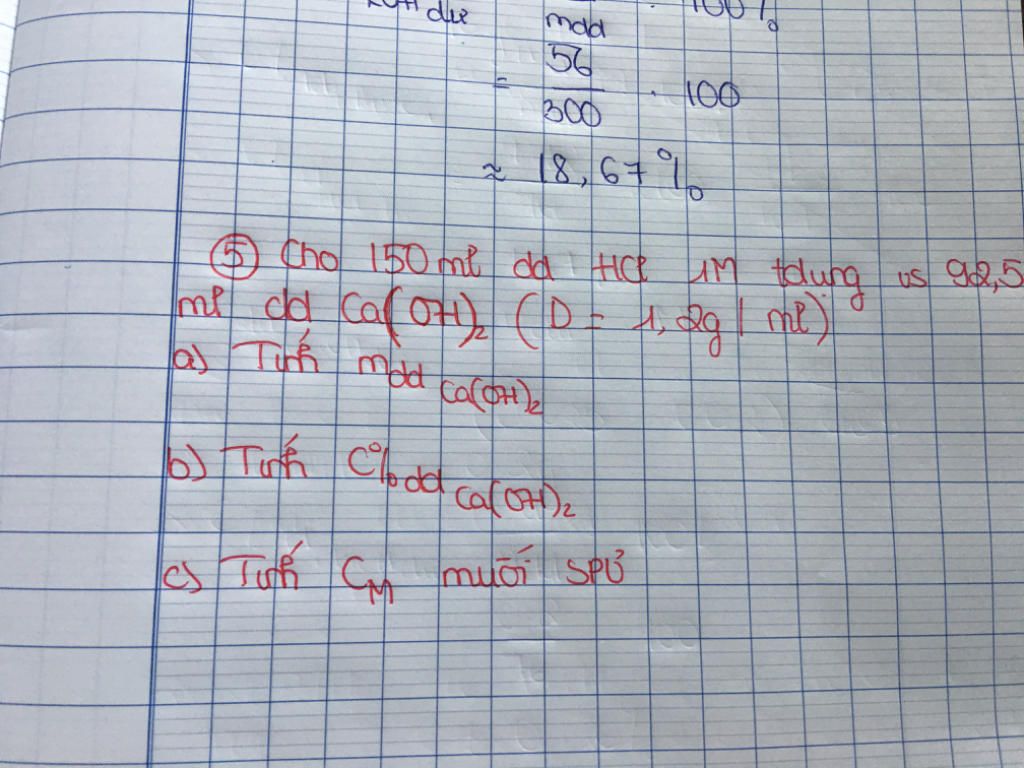 KOH dư mdd . 100%
= 56/300 . 100
≈ 18,67%
⑤ Cho 150 ml dd HCl 1M tdụng vs 92,5
ml dd Ca(OH)₂ (D = 1,2g/ml)
a) Tính mdd Ca(OH)₂
b) Tính C% dd Ca(OH)₂
c) Tính CM muối SPƯ